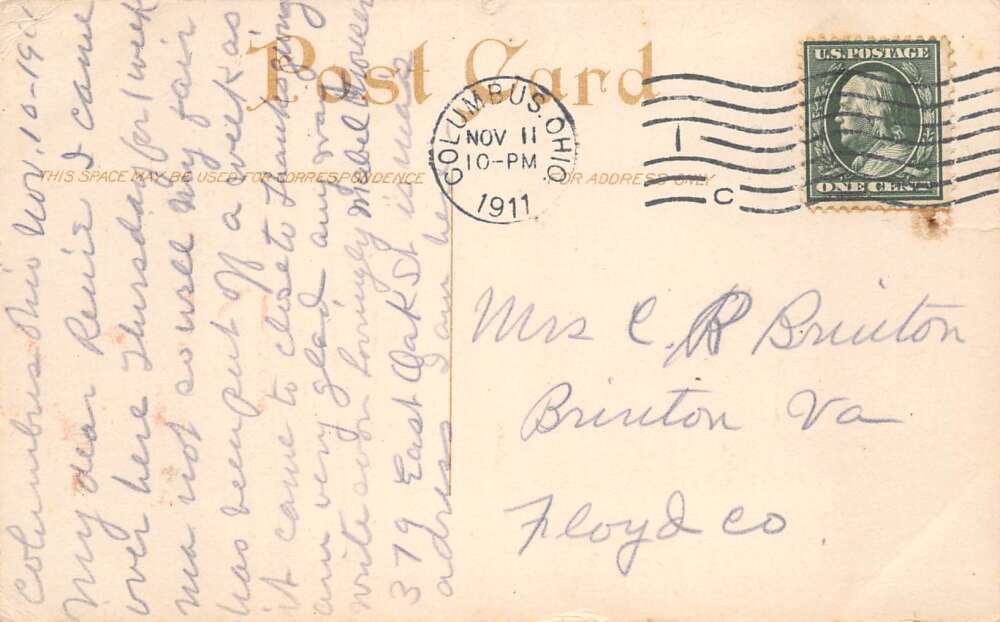 Post Card
THIS SPACE MAY BE USED FOR CORRESPONDENCE
FOR ADDRESS ONLY
COLUMBUS, OHIO.
NOV 11
10-PM
1911
1
C
U.S. POSTAGE
ONE CENT
Mrs C. R Brinton
Brinton Va
Floyd co.
Columbus Ohio Nov. 10-19
My dear Renie I came
over here Thursday for 1 week
ma not so well My fair
has been put off a week as
it came to close to Thanksgiving
am very glad any way
write soon Lovingly Mabel
379 East Oak St
address